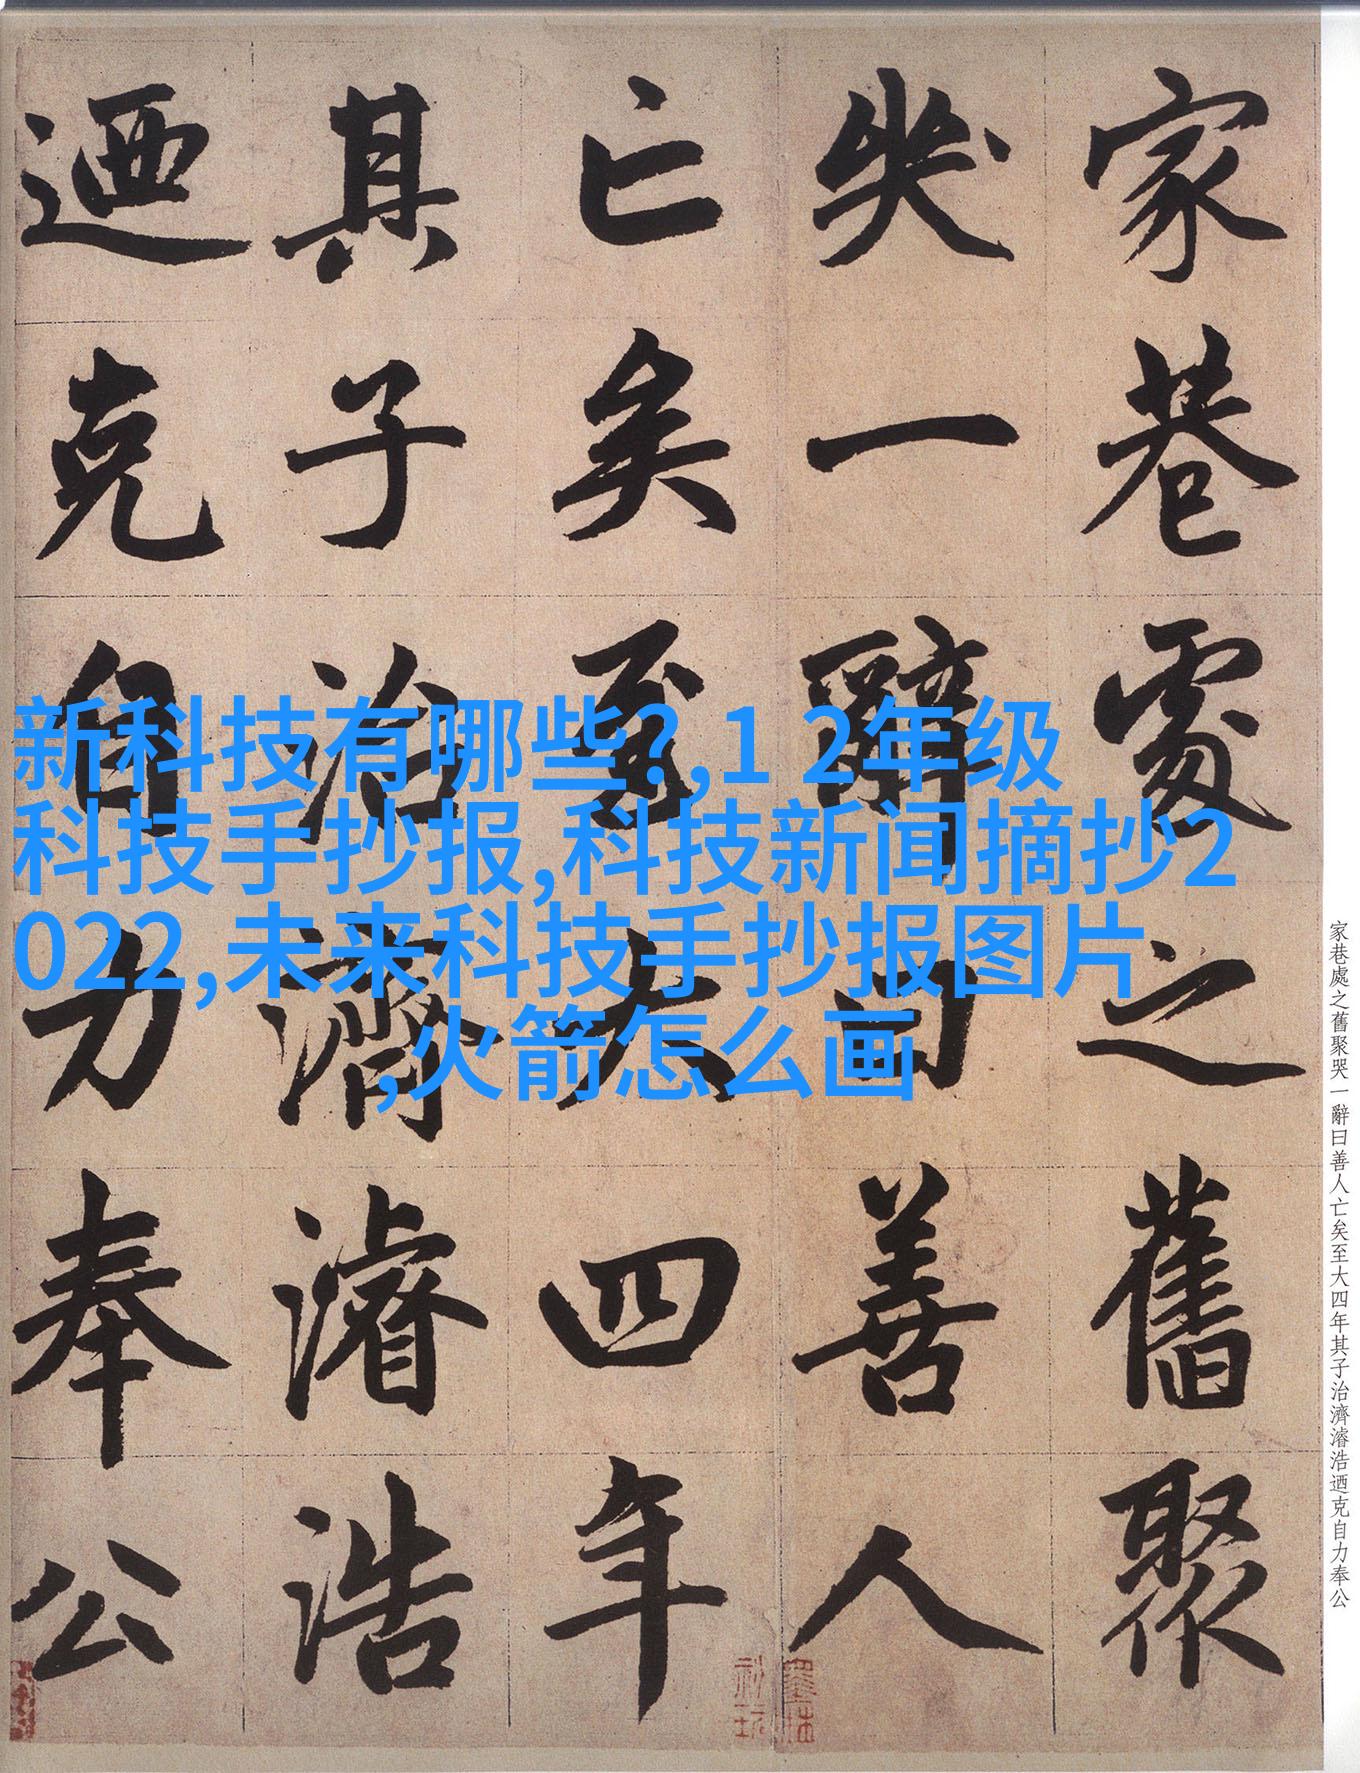 家巷處之舊聚
哭一辭曰善人
亡矣至大四年
其子治濟濬浩
迺克自力奉公
新科技有哪些?,1 2年级
科技手抄报,科技新闻摘抄2
022,未来科技手抄报图片
,火箭怎么画
家巷處之舊聚哭一辭曰善人亡矣至大四年其子治濟濬浩迺克自力奉公